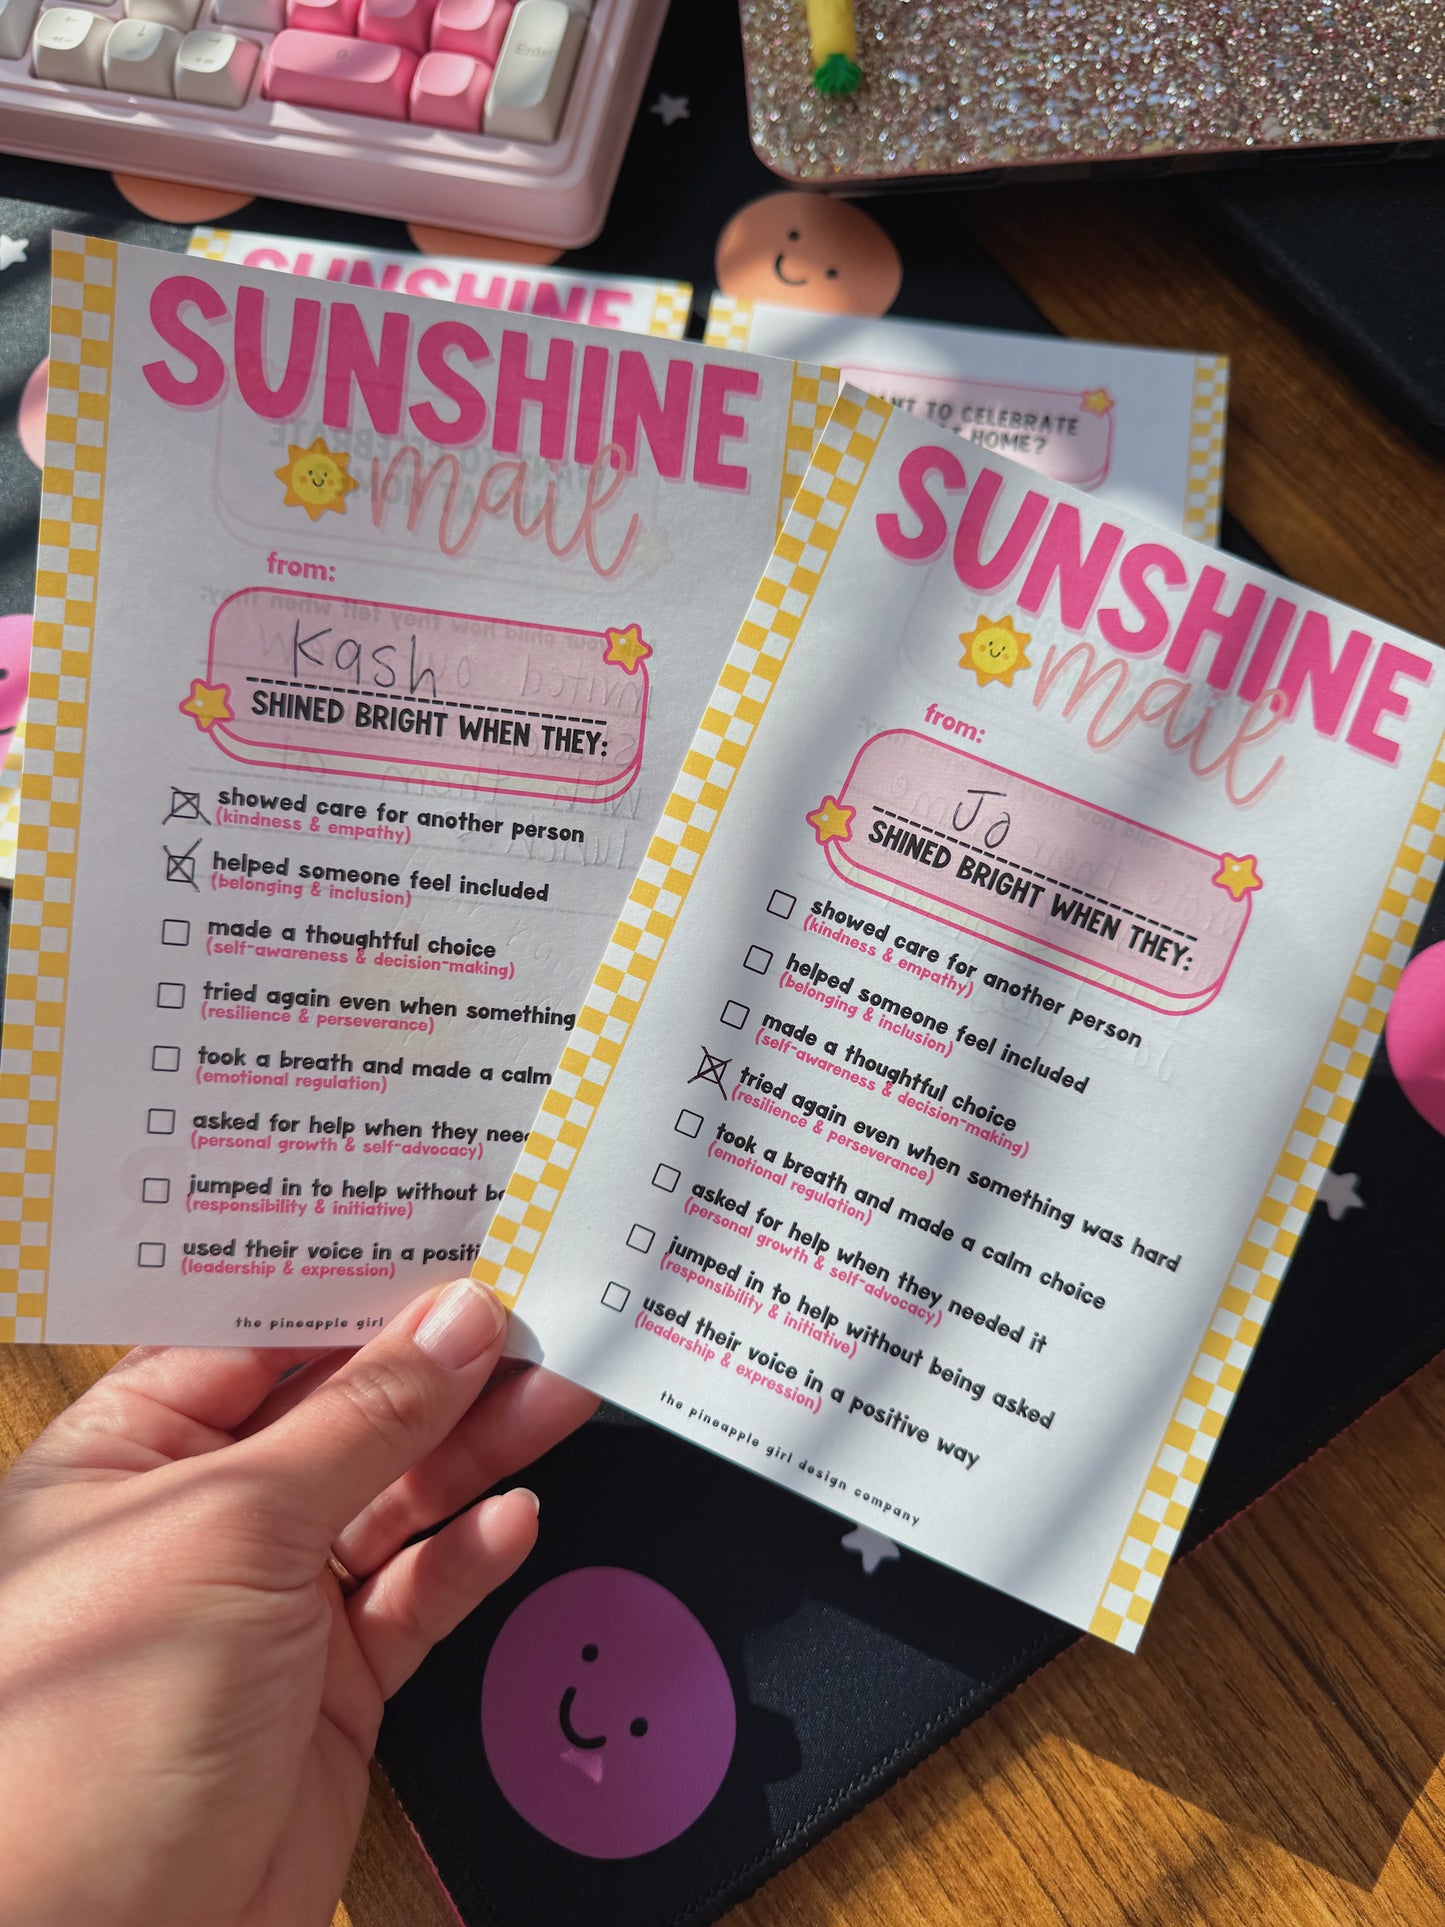 Enter
SUNSHINE
WANT TO CELEBRATE
HOME?
SUNSHINE
mail
from:
Kash
SHINED BRIGHT WHEN THEY:
showed care for another person
(kindness & empathy)
helped someone feel included
(belonging & inclusion)
made a thoughtful choice
(self-awareness & decision-making)
tried again even when something
(resilience & perseverance)
took a breath and made a calm
(emotional regulation)
asked for help when they
(personal growth & self-advocacy)
jumped in to help without
(responsibility & initiative)
used their voice in a
(leadership & expression)
the pineapple girl
SUNSHINE
mail
from:
Jo
SHINED BRIGHT WHEN THEY:
showed care for another person
(kindness & empathy)
helped someone feel included
(belonging & inclusion)
made a thoughtful choice
(self-awareness & decision-making)
tried again even when something was hard
(resilience & perseverance)
took a breath and made a calm choice
(emotional regulation)
asked for help when they needed it
(personal growth & self-advocacy)
jumped in to help without being asked
(responsibility & initiative)
used their voice in a positive way
(leadership & expression)
the pineapple girl design company